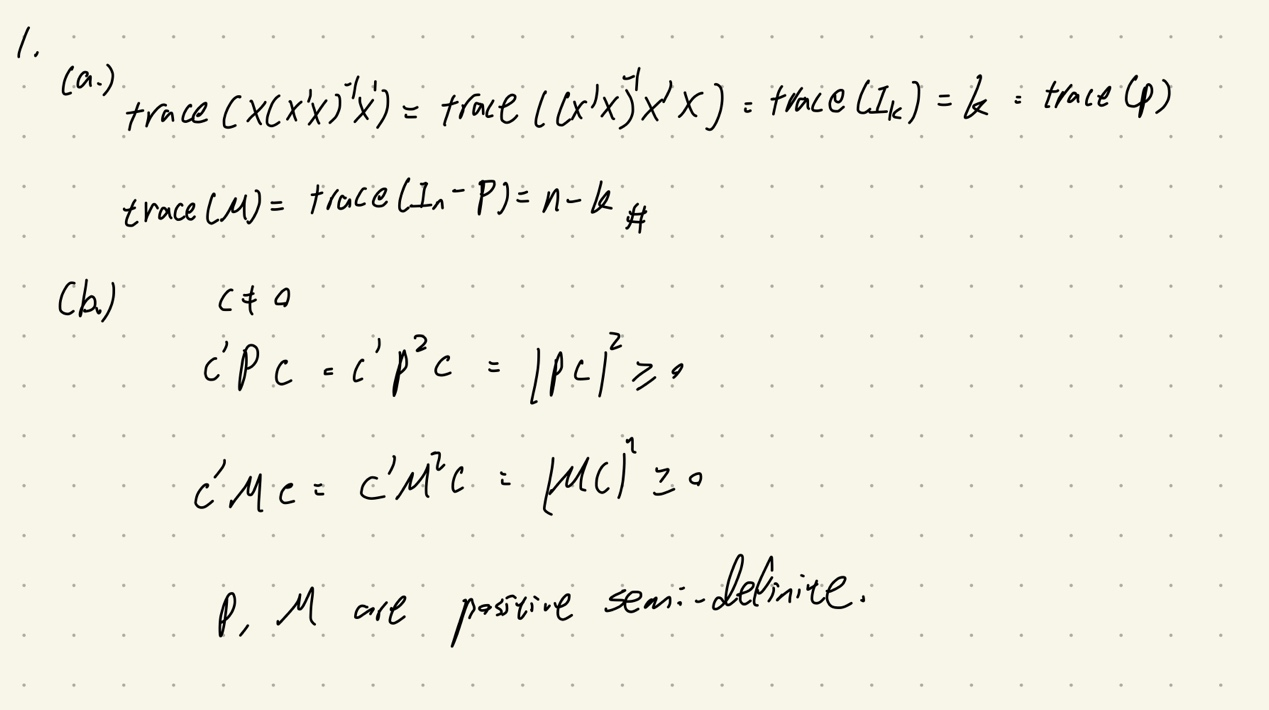 1.
(a.)
trace (X(X'X)⁻¹X') = trace ((X'X)⁻¹X'X) = trace (I_k) = k = trace (P)
trace (M) = trace (I_n - P) = n - k #
(b.) c ≠ 0
c'Pc = c'P²c = |Pc|² ≥ 0
c'Mc = c'M²c = |Mc|² ≥ 0
P, M are positive semi-definite.